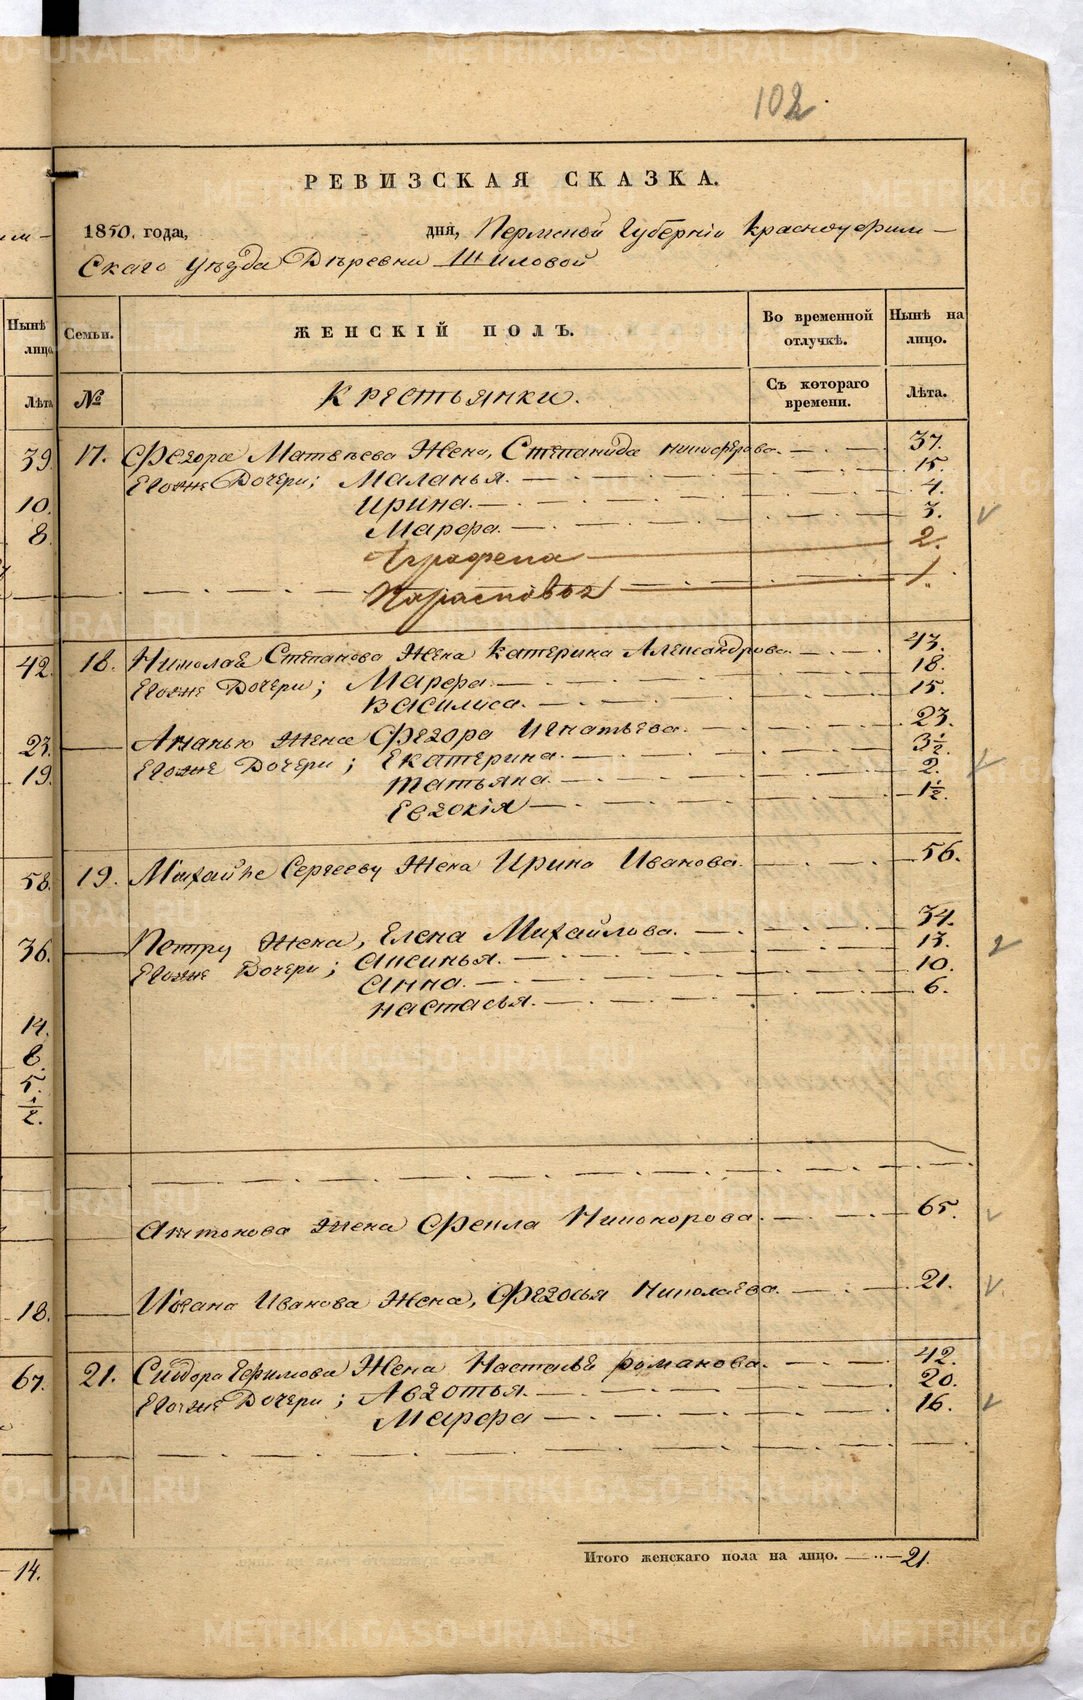 102
РЕВИЗСКАЯ СКАЗКА.
1850. года, дня, Пермской Губерніи Красноуфим-
скаго уѣзда Деревни Шиловой
Нынѣ лицо
Семьи. ЖЕНСКІЙ ПОЛЪ. Во временной отлучкѣ. Нынѣ на лицо.
Лѣта № Крестьянки. Съ котораго времени. Лѣта.
39. 17. Федора Матвѣева Жена, Степанида Никифорова. 37.
Егоже Дочери; Маланья. 15.
10. Ирина. 4.
8. Марфа. 3.
Аграфена 2.
Парасковья 1.
42. 18. Николая Степанова Жена Катерина Александрова. 43.
Егоже Дочери; Марфа. 18.
Василиса. 15.
23. Ананью Жена Федора Игнатьева. 23.
19. Егоже Дочери; Екатерина. 3½.
Татьяна. 2.
Евдокія 1½.
58. 19. Михайле Сергееву Жена Ирина Иванова. 56.
36. Петру Жена, Елена Михайлова. 34.
Егоже Дочери; Аксинья. 13.
Анна. 10.
Настасья. 6.
14.
8.
5.
½.
Антонова Жена Фекла Никонорова. 65.
18. Ивана Иванова Жена, Федосья Николаева. 21.
67. 21. Сидора Ефимова Жена Настасья Романова. 42.
Егоже Дочери; Авдотья. 20.
Марфа 16.
14. Итого женскаго пола на лицо. 21.
METRIKI.GASO-URAL.RU